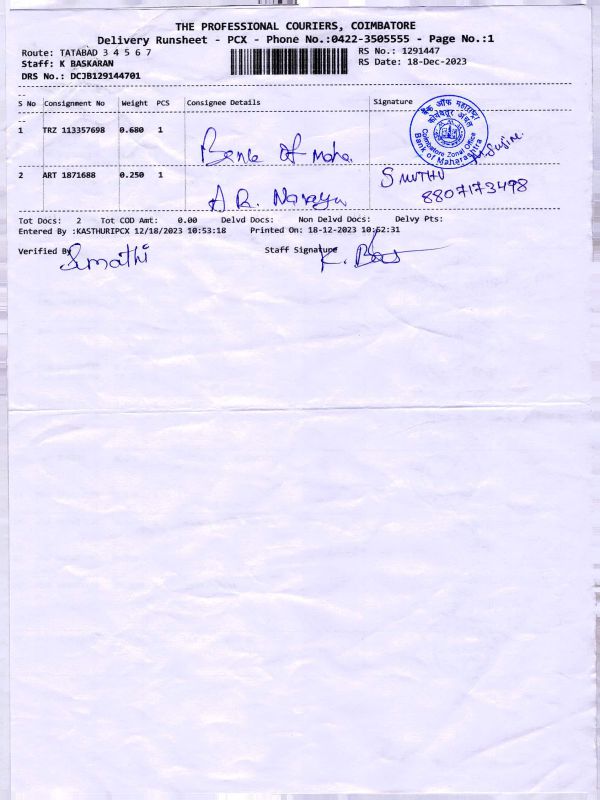 THE PROFESSIONAL COURIERS, COIMBATORE
Delivery Runsheet - PCX - Phone No.:0422-3505555 - Page No.:1
Route: TATABAD 3 4 5 6 7
Staff: K BASKARAN
DRS No.: DCJB129144701
RS No.: 1291447
RS Date: 18-Dec-2023
S No Consignment No Weight PCS Consignee Details Signature
1 TRZ 113357698 0.680 1 Bank of Maha.
बैंक ऑफ महाराष्ट्र
कोयंबतूर अंचल
Coimbatore Zonal Office
Bank of Maharashtra
2 ART 1871688 0.250 1 A R. Narayan S MUTHU
8807173498
Tot Docs: 2 Tot COD Amt: 0.00 Delvd Docs: Non Delvd Docs: Delvy Pts:
Entered By :KASTHURIPCX 12/18/2023 10:53:18 Printed On: 18-12-2023 10:62:31
Verified By Sumathi Staff Signature K. Bas